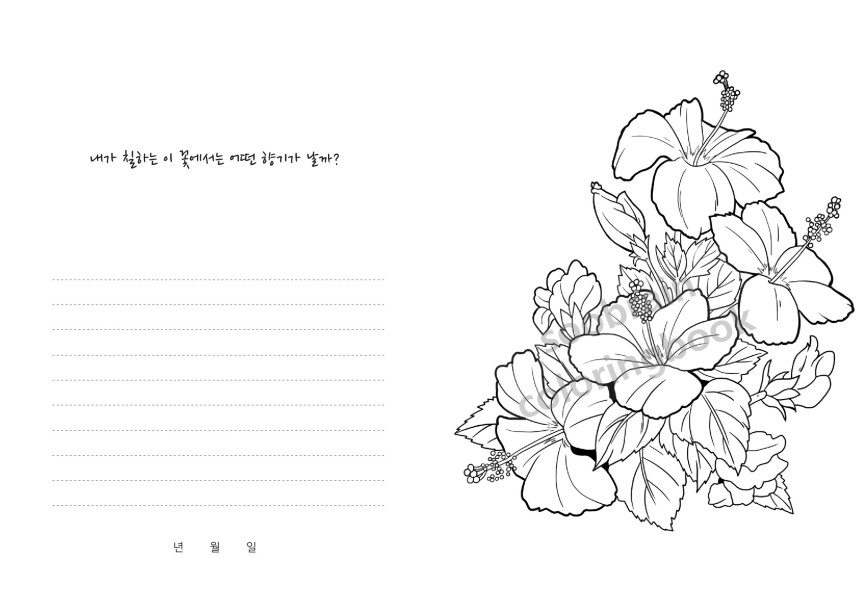 내가 칠하는 이 꽃에서는 어떤 향기가 날까?
년 월 일
coloringbook